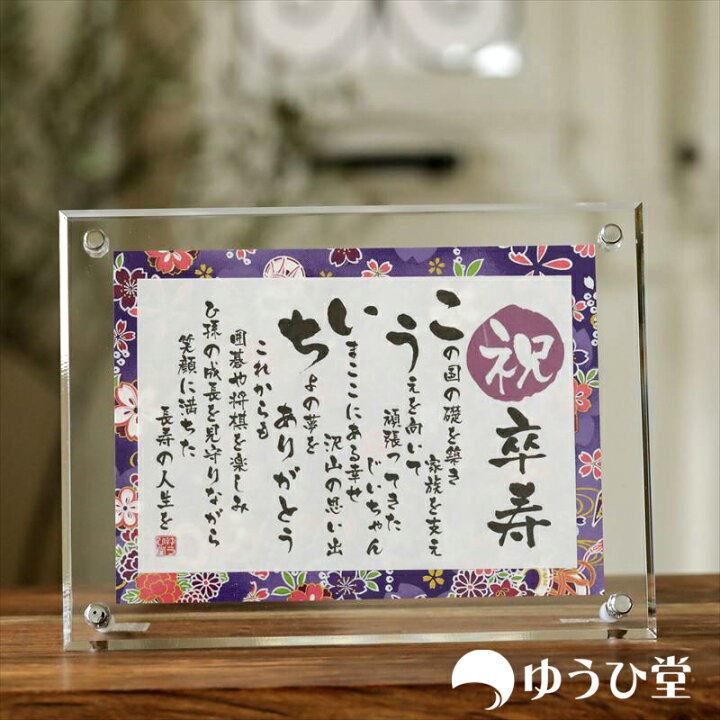 祝
卒寿
この国の礎を築き
家族を支え
うえを向いて
頑張ってきた
じいちゃん
いまここにある幸せ
沢山の思い出
ちよの夢を
ありがとう
これからも
囲碁や将棋を楽しみ
ひ孫の成長を見守りながら
笑顔に満ちた
長寿の人生を
ゆうひ堂